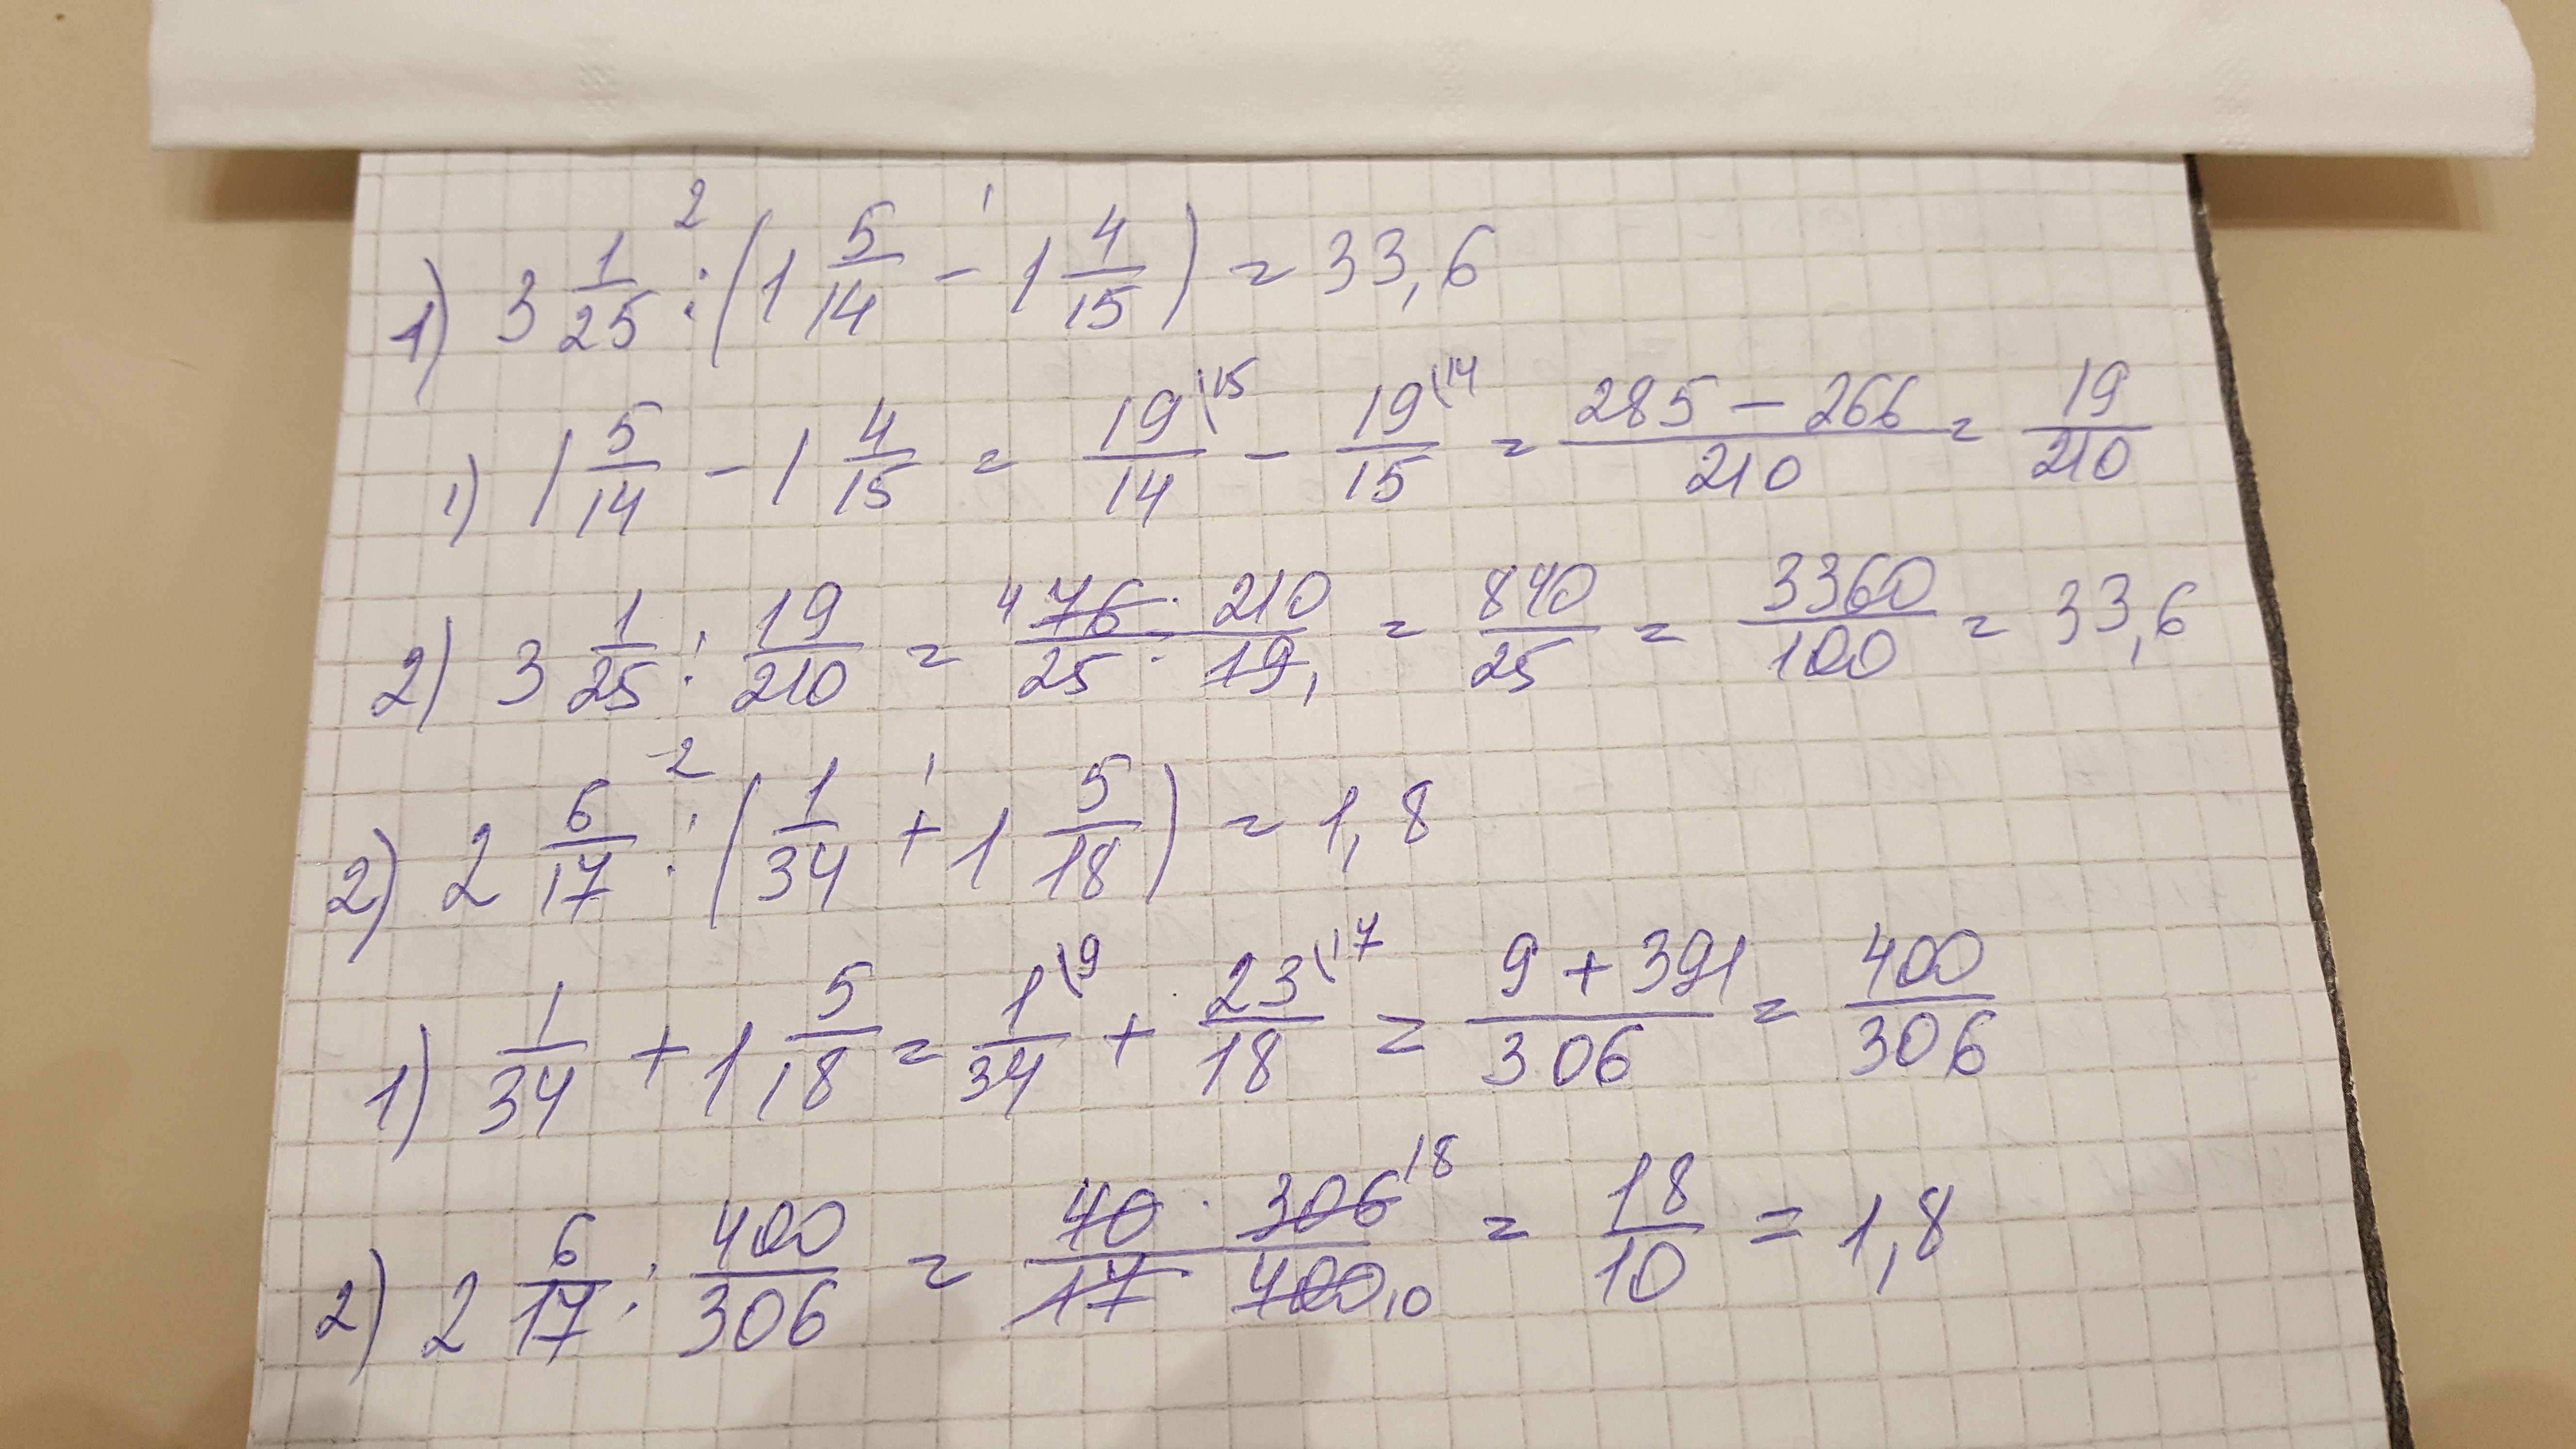 1) 3 1/25 :² (1 5/14 -¹ 1 4/15) = 33,6
1) 1 5/14 - 1 4/15 = 19\15/14 - 19\14/15 = 285 - 266/210 = 19/210
2) 3 1/25 : 19/210 = 4 76 · 210/25 · 19 1 = 840/25 = 3360/100 = 33,6
2) 2 6/17 :² (1/34 +¹ 1 5/18) = 1,8
1) 1/34 + 1 5/18 = 1\9/34 + 23\17/18 = 9 + 391/306 = 400/306
2) 2 6/17 : 400/306 = 40 · 306 18/17 400 10 = 18/10 = 1,8